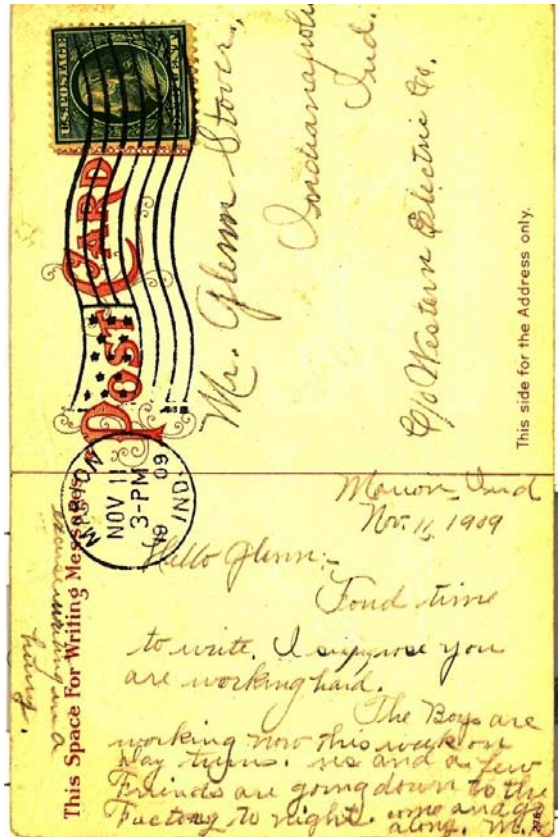 U.S. POSTAGE
POST CARD
MARION
NOV 11
3-PM
19 09
IND.
Mr. Glenn Stover,
Indianapolis
Ind.
C/o Western Electric Co.
This side for the Address only.
This Space For Writing Messages
Marion, Ind
Nov. 11, 1909
Hello Glenn:-
Fond time
to write. I suppose you
are working hard.
The Boys are
working now this week on
day turns. us and a few
Friends are going down to the
Factory to night. come and go
along. M.
writing in a
hurry.